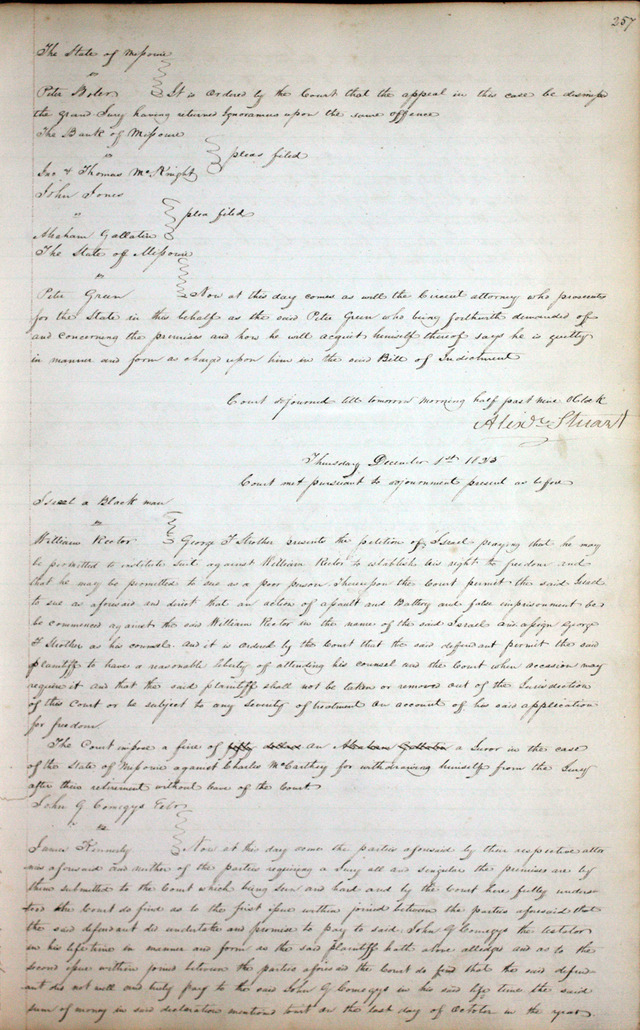 257
The State of Missouri
vs
Peter Boler It is ordered by the Court that the appeal in this case be dismissd
the grand Jury having returned Ignoramus upon the same offence
The Bank of Missouri
vs
Jno & Thomas McKnight pleas filed
John Jones
vs plea filed
Abraham Gallatin
The State of Missouri
vs
Peter Green Now at this day comes as well the Circuit attorney who prosecutes
for the State in this behalf as the said Peter Green who being forthwith demanded of
and concerning the premises and how he will acquit himself thereof says he is guilty
in manner and form as charge upon him in the said Bill of Indictment
Court adjourned till tomorrow morning half past nine OClock
Alexdr Stuart
Thursday December 1st 1825
Court met pursuant to adjournment present as before
Israel a Black man
vs
William Rector George F Strother presents the petition of Israel praying that he may
be permitted to institute Suit against William Rector to establish his right to freedom and
that he may be permitted to sue as a poor person Thereupon the Court permit the said Israel
to sue as aforesaid and direct that an action of assault and Battery and false imprisonment be
be commenced against the said William Rector in the name of the said Israel and assign George
F Strother as his counsel and it is ordered by the Court that the said defendant permit the said
plaintiff to have a reasonable liberty of attending his counsel and the Court when occasion may
require it and that the said plaintiff shall not be taken or removed out of the Jurisdiction
of this Court or be subject to any severity of treatment on account of his said application
for freedom.
The Court impose a fine of fifty dollars on Abraham Gallatin a Juror in the case
of the State of Missouri against Charles McCarthey for withdrawing himself from the Jury
after their retirement without leave of the Court
John G Comegys
vs
James Kennerly Now at this day come the parties aforesaid by their respective attor
nies aforesaid and neither of the parties requiring a Jury all and singular the premises are by
them submitted to the Court which being seen and heard and by the Court here fully unders
tood the Court do find as to the first issue within joined between the parties aforesaid that
the said defendant did undertake and promise to pay to said John G Comegys the testator
in his life time in manner and form as the said plaintiff hath above alledged and as to the
second issue within joined between the parties aforesaid the Court do find that the said defend
ant did not well and truly pay to the said John G Comegys in his said life time the said
sum of money in said declaration mentioned but on the last day of October in the year